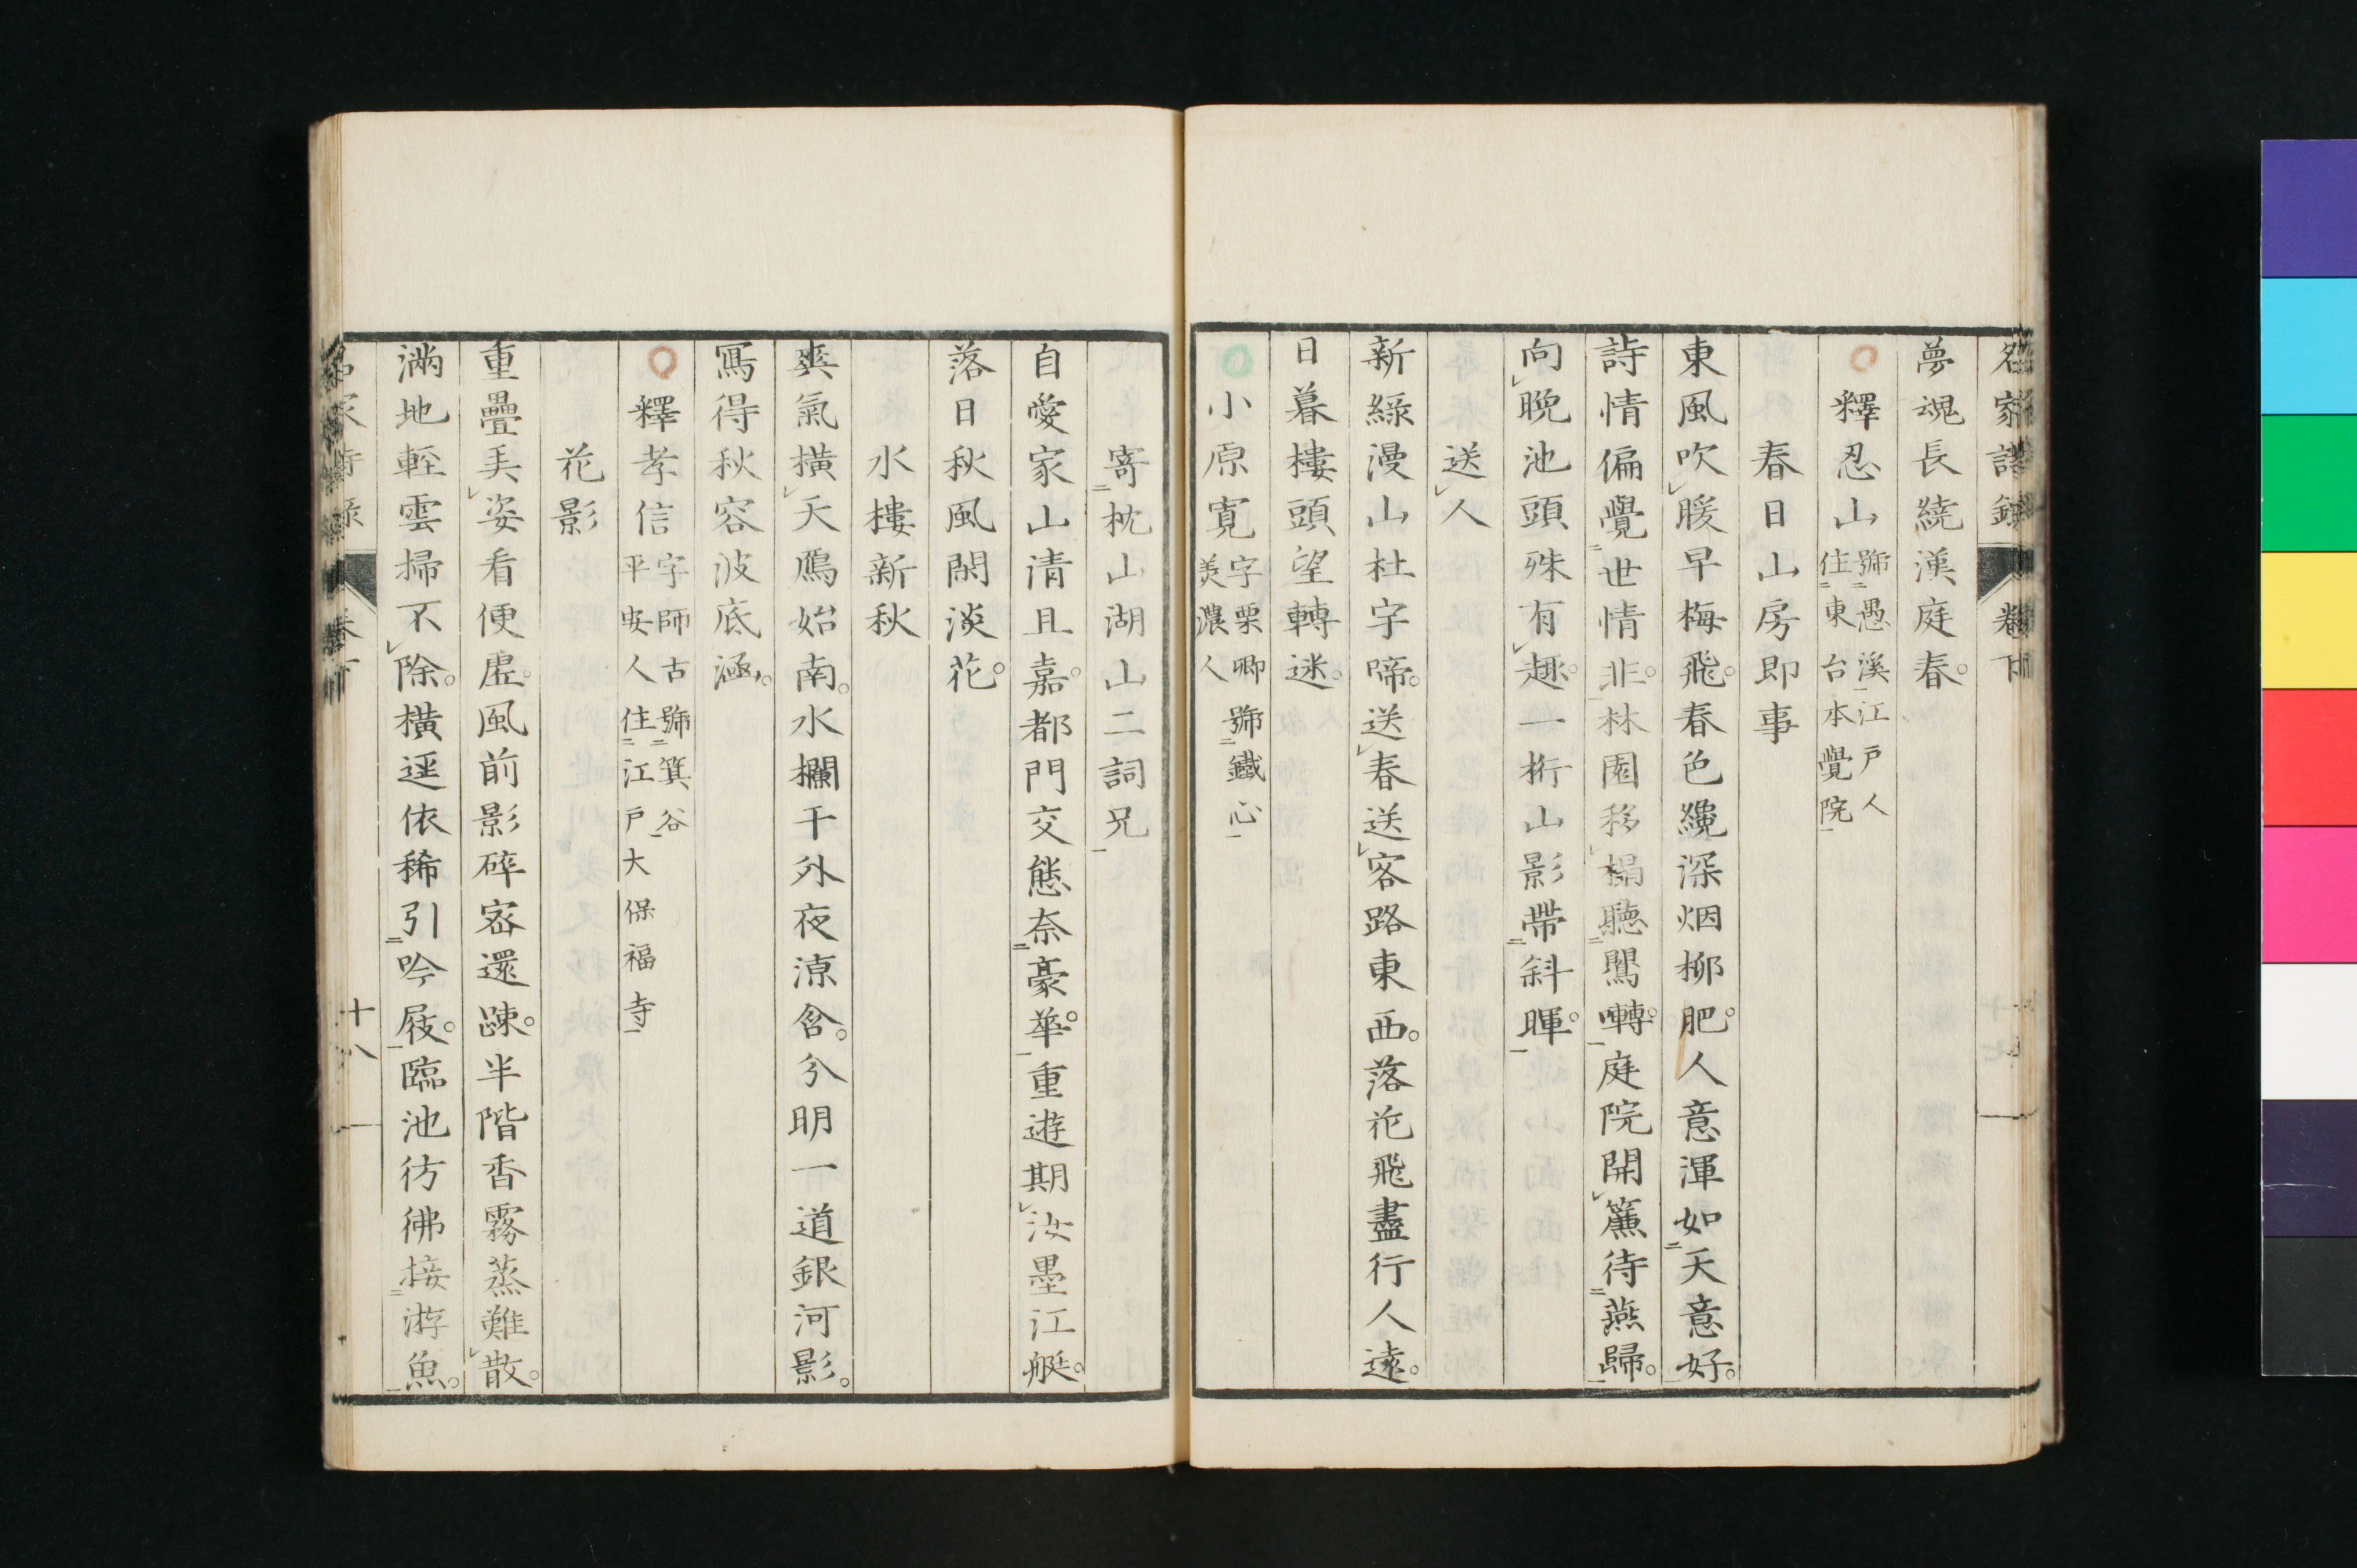 名家詩錄 卷下
夢魂長繞漢庭春。
釋忍山 號愚溪江戶人 住東台本覺院
春日山房即事
東風吹暖早梅飛。春色纔深烟柳肥。人意渾如天意好。
詩情偏覺世情非。林園移榻聽鶯囀。庭院開簾待燕歸。
向晚池頭殊有趣。一桁山影帶斜暉。
送人
新綠漫山杜宇啼。送春送客路東西。落花飛盡行人遠。
日暮樓頭望轉迷。
小原寬 字栗卿 美濃人 號鐵心
寄枕山湖山二詞兄
自愛家山清且嘉。都門交態奈豪華。重遊期汝墨江艇。
落日秋風閑淡花。
水樓新秋
爽氣橫天鴈始南。水欄干外夜涼含。分明一道銀河影。
寫得秋容波底涵。
釋孝信 字師古號箕谷 平安人住江戶大保福寺
花影
重疊美姿看便虛。風前影碎密還踈。半階香霧蒸難散。
滿地輕雲掃不除。橫逕依稀引吟屐。臨池彷彿接游魚。
名家詩錄 卷下 十八